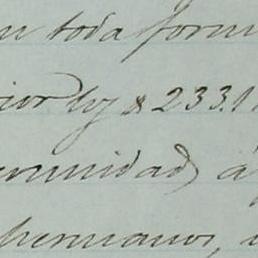 n toda form
ior ley & 233.1
ormidad, á
hermanos,